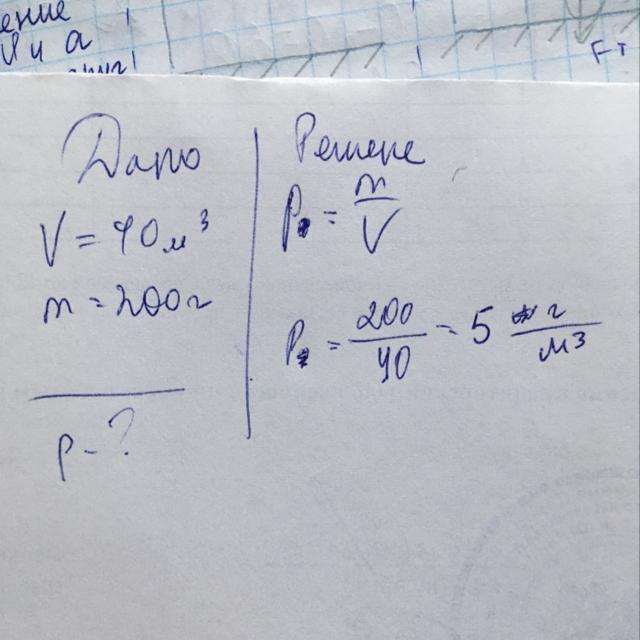 ение
V и а
Fт
Дано
V = 40 м³
m = 200 г
ρ - ?
Решене
ρ = m/V
ρ = 200/40 = 5 г/м³